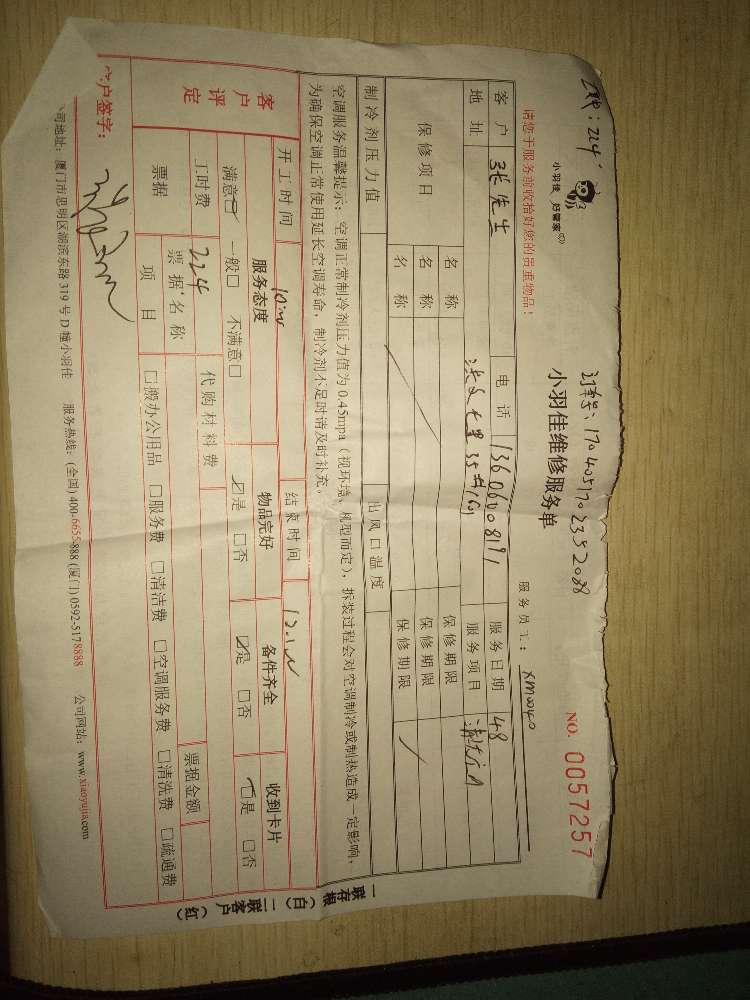 224
订单号: 1704051702352088
小羽佳 好管家
小羽佳维修服务单
NO. 0057257
请您于服务前收拾好您的贵重物品！
服务员工：XM0040
客户 张先生 电话 13606008191 服务日期 4.8
地址 服务项目
保修项目 名称 保修期限
名称 保修期限
名称 保修期限
制冷剂压力值 出风口温度
空调服务温馨提示：空调正常制冷剂压力值为 0.45mpa（视环境、机型而定），拆装过程会对空调制冷或制热造成一定影响，
为确保空调正常使用延长空调寿命，制冷剂不足时请及时补充。
开工时间 结束时间
客户评定 服务态度 物品完好 备件齐全 收到卡片
满意☑ 一般□ 不满意□ ☑是 □否 ☑是 □否 是 □否
工时费 224 代购材料费
票据 票据名称 票据金额
项目 □搬办公用品 □服务费 □清洁费 □空调服务费 □清洗费 □疏通费
户签字：
司地址：厦门市思明区湖滨东路 319 号 D 幢小羽佳 服务热线：(全国) 400-6655-888 (厦门) 0592-5178888 公司网站：www.xiaoyujia.com
一联存根（白） 二联客户（红）